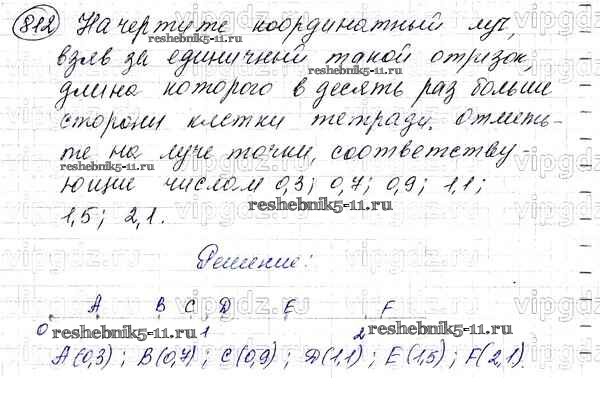 812 Начертите координатный луч,
reshebnik5-11.ru
взяв за единичный такой отрезок,
длина которого в десять раз больше
стороны клетки тетради. Отметь-
те на луче точки, соответству-
ющие числам 0,3; 0,7; 0,9; 1,1;
reshebnik5-11.ru
1,5; 2,1.
Решение:
A B C D E F
0 1 2
reshebnik5-11.ru reshebnik5-11.ru
A(0,3); B(0,7); C(0,9); D(1,1); E(1,5); F(2,1).
vipgdz.ru vipgdz.ru vipgdz.ru